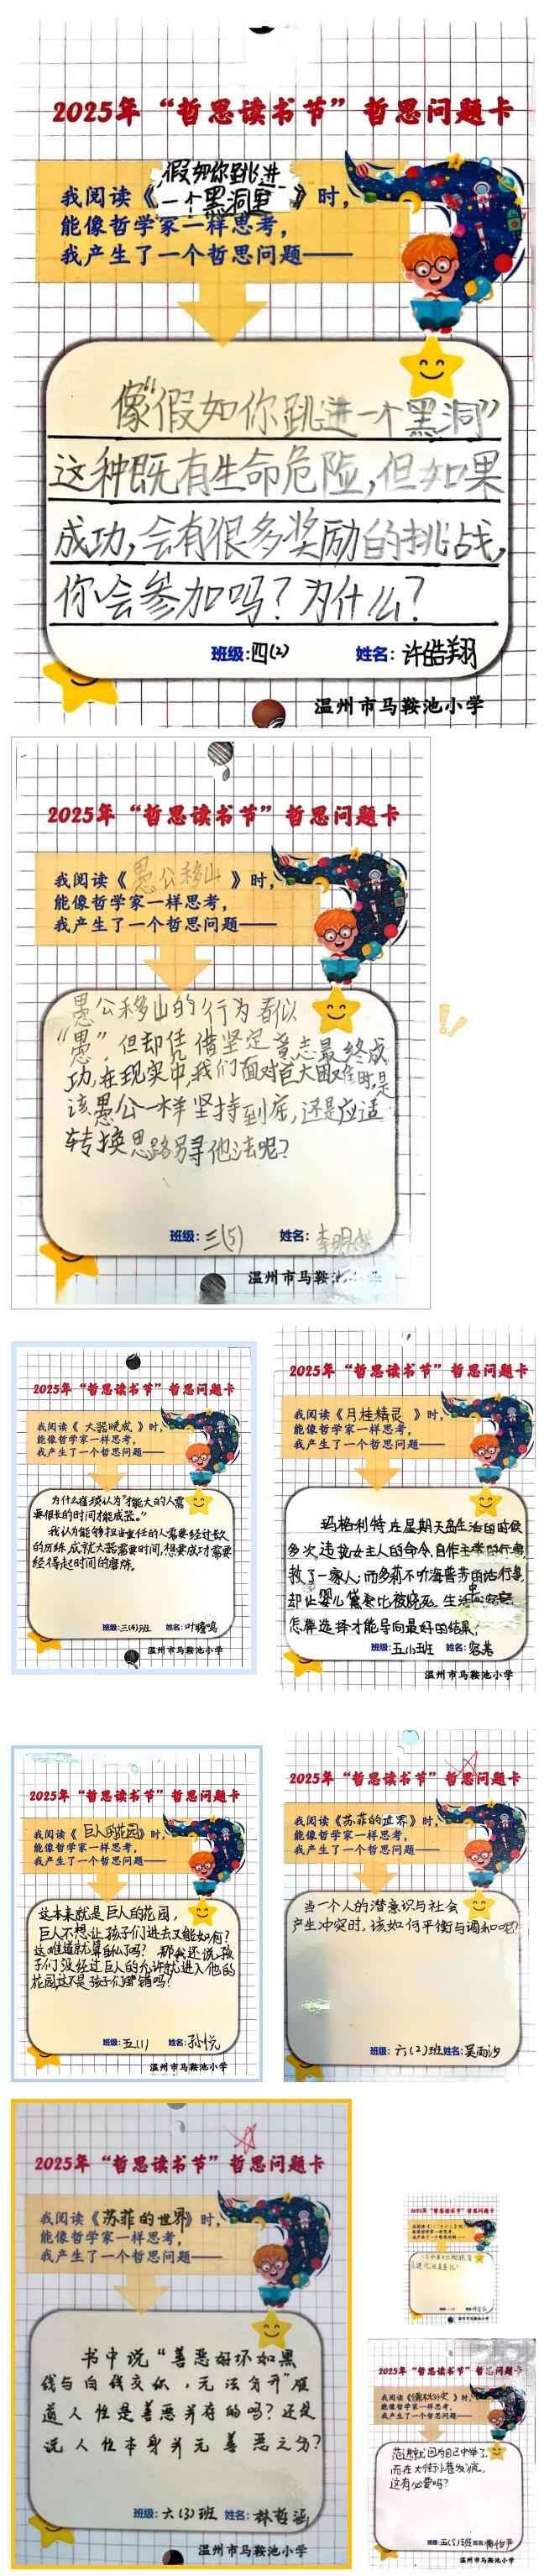 2025年“哲思读书节”哲思问题卡
我阅读《假如你跳进一个黑洞里》时，
能像哲学家一样思考，
我产生了一个哲思问题——
像“假如你跳进一个黑洞”
这种既有生命危险，但如果
成功，会有很多奖励的挑战，
你会参加吗？为什么？
班级：四(2) 姓名：许皓翔
温州市马鞍池小学
2025年“哲思读书节”哲思问题卡
我阅读《愚公移山》时，
能像哲学家一样思考，
我产生了一个哲思问题——
愚公移山的行为看似
“愚”，但却凭借坚定意志最终成
功，在现实中，我们面对巨大困难时，是
该愚公一样坚持到底，还是应适
转换思路另寻他法呢？
班级：三(5) 姓名：李明
温州市马鞍
2025年“哲思读书节”哲思问题卡
我阅读《大器晚成》时，
能像哲学家一样思考，
我产生了一个哲思问题——
为什么崔琰认为“才能大的人需
要很长的时间才能成器。”
我认为能够担当重任的人需要经过长久
的历练，成就大器需要时间，想要成功需要
经得起时间的磨炼。
班级：三(4)班 姓名：叶瞻鸣
温州市马鞍池小学
2025年“哲思读书节”哲思问题卡
我阅读《月桂精灵》时，
能像哲学家一样思考，
我产生了一个哲思问题——
玛格利特在星期天孤生活的时候
多次违抗女主人的命令，自作主张的行事
救了一家人；而多莉不听海普芬的
却让婴儿黛表比被烧死。生活中
怎样选择才能导向最好的结果？
班级：五(1)班 姓名：容若
温州市马鞍池小学
2025年“哲思读书节”哲思问题卡
我阅读《巨人的花园》时，
能像哲学家一样思考，
我产生了一个哲思问题——
这本来就是巨人的花园，
巨人不想让孩子们进去又能如何？
这难道就算自私了吗？那我还说孩
子们没经过巨人的允许就进入他的
花园这不是孩子们的错吗？
班级：五(1) 姓名：孙悦
温州市马鞍池小学
2025年“哲思读书节”哲思问题卡
我阅读《苏菲的世界》时，
能像哲学家一样思考，
我产生了一个哲思问题——
当一个人的潜意识与社会
产生冲突时，该如何平衡与调和呢？
班级：六(2)班 姓名：吴雨汐
2025年“哲思读书节”哲思问题卡
我阅读《苏菲的世界》时，
能像哲学家一样思考，
我产生了一个哲思问题——
书中说“善恶好坏如黑
线与白线交织，无法分开”难
道人性是善恶并存的吗？还是
说人性本身并无善恶之分？
班级：六(3)班 姓名：林哲涵
温州市马鞍池小学
2025年“哲思读书节”哲思问题卡
能像哲学家一样思考，
我产生了一个哲思问题——
温州市马鞍池小学
2025年“哲思读书节”哲思问题卡
我阅读《儒林外史》时，
能像哲学家一样思考，
我产生了一个哲思问题——
范进就因为自己中举了，
而在大街小巷发疯，
这有必要吗？
班级：五(5)班 姓名：
温州市马鞍池小学